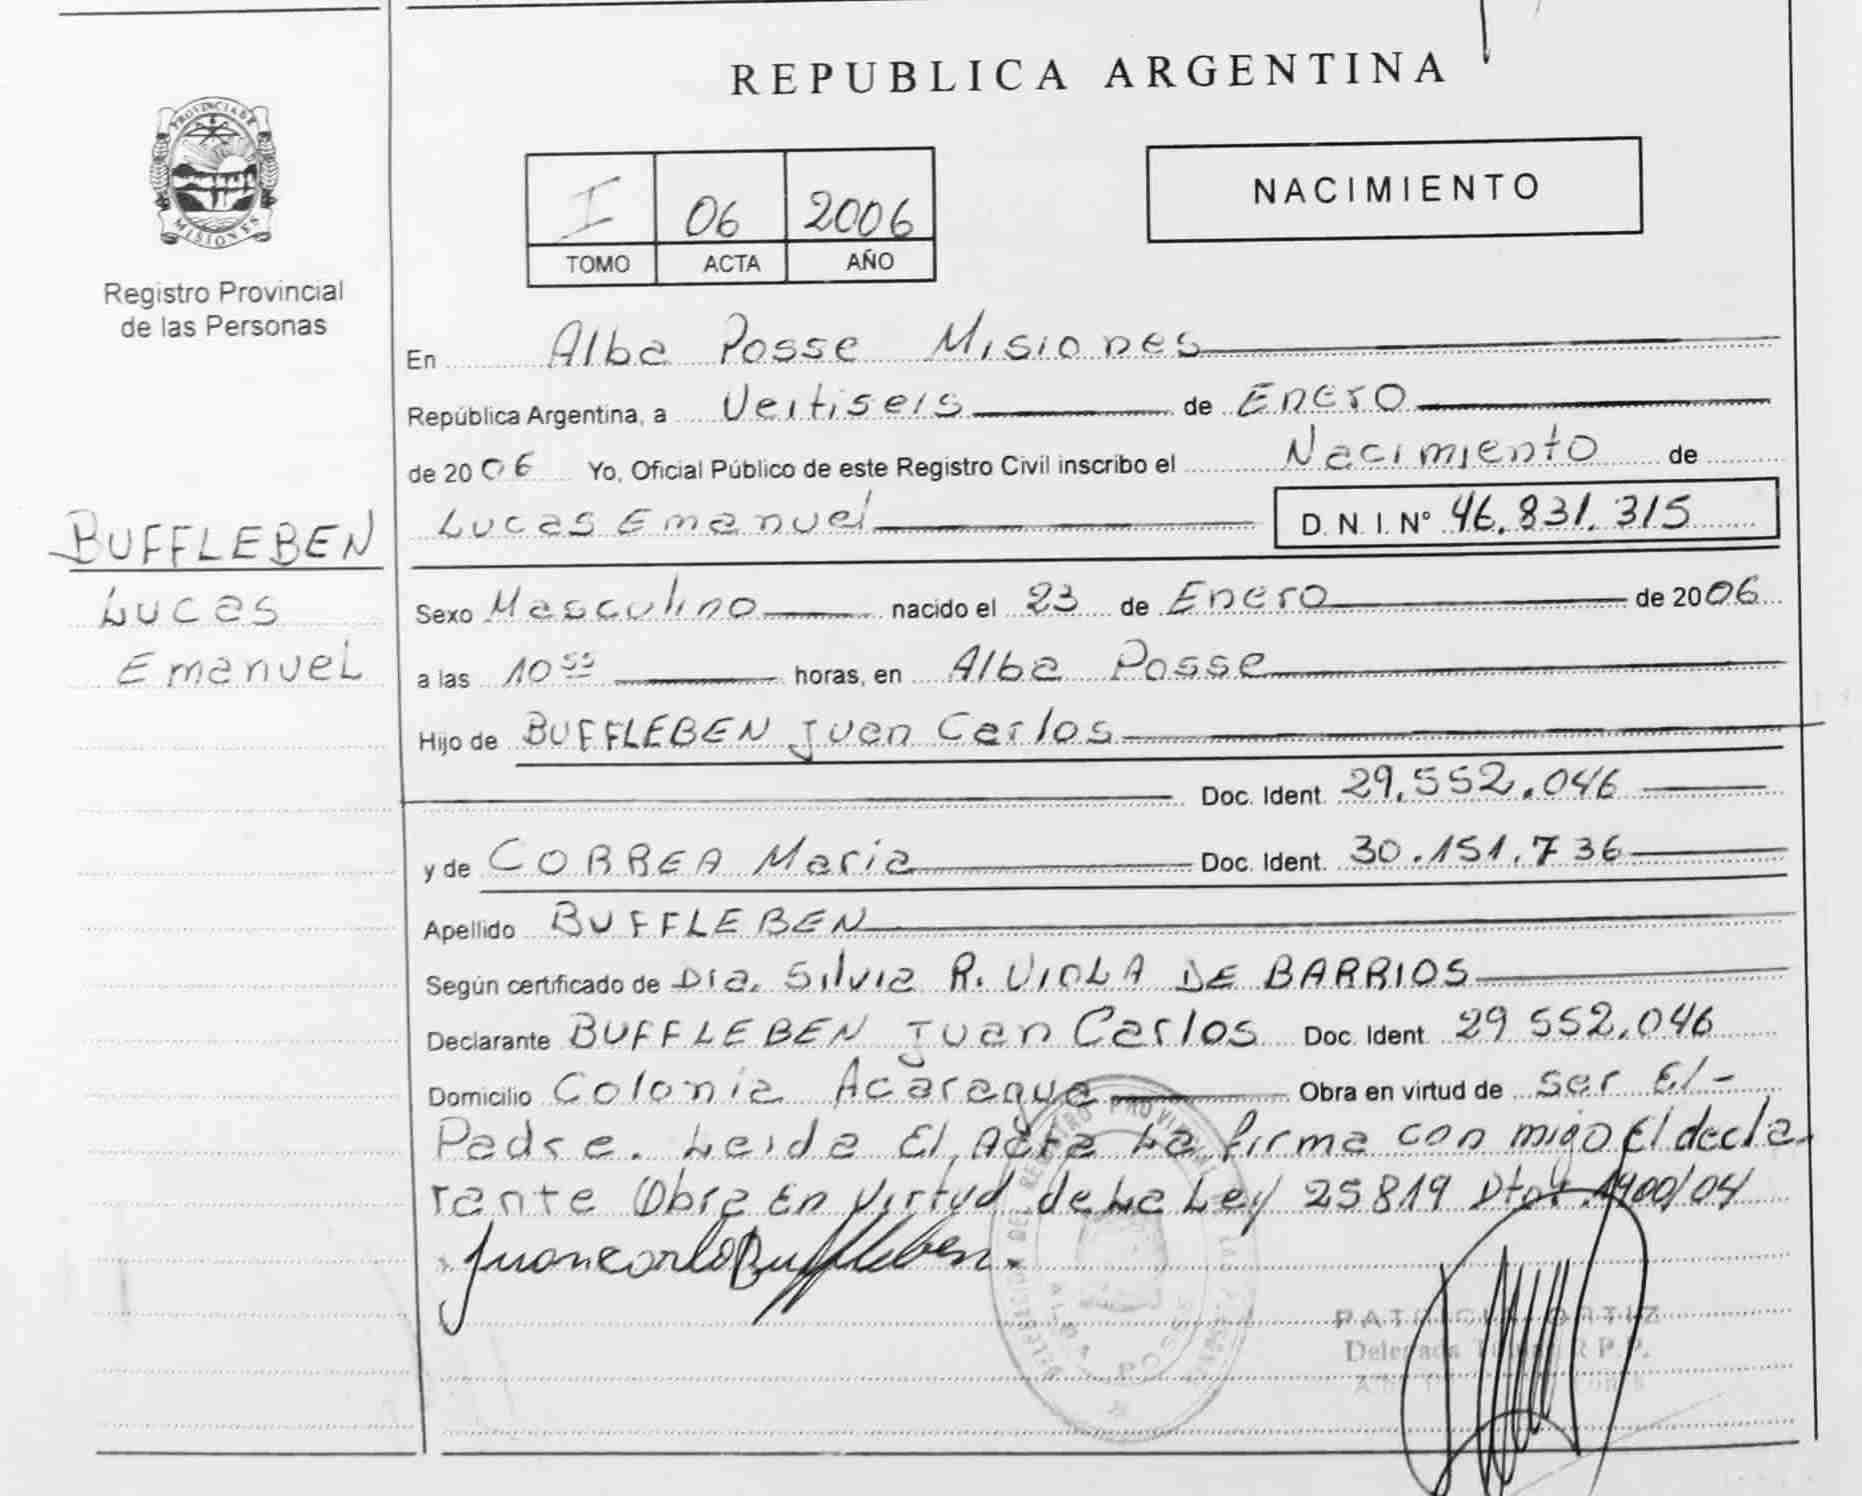 REPUBLICA ARGENTINA
PROVINCIA DE
MISIONES
Registro Provincial
de las Personas
I 06 2006
TOMO ACTA AÑO
NACIMIENTO
En Alba Posse Misiones
República Argentina, a Veitiseis de Enero
de 2006 Yo, Oficial Público de este Registro Civil inscribo el Nacimiento de
Lucas Emanuel D. N. I. N° 46.831.315
BUFFLEBEN
Lucas
Emanuel
Sexo Masculino nacido el 23 de Enero de 2006
a las 10 55 horas, en Alba Posse
Hijo de BUFFLEBEN Juan Carlos
Doc. Ident. 29.552.046
y de CORREA Maria Doc. Ident. 30.151.736
Apellido BUFFLEBEN
Según certificado de Dra. Silvia R. VIOLA DE BARRIOS
Declarante BUFFLEBEN Juan Carlos Doc. Ident. 29 552.046
Domicilio Colonia Acaragua Obra en virtud de ser El-
Padre. Leida El Acta La firma con migo El decla-
rante Obra En Virtud de La Ley 25819 Dto 1400/04
Juan Carlo Buffleben
DELEGACION DEL REGISTRO PROVINCIAL DE LAS PERSONAS
ALBA POSSE
PATRICIA ORTIZ
Delegada R.P.P.